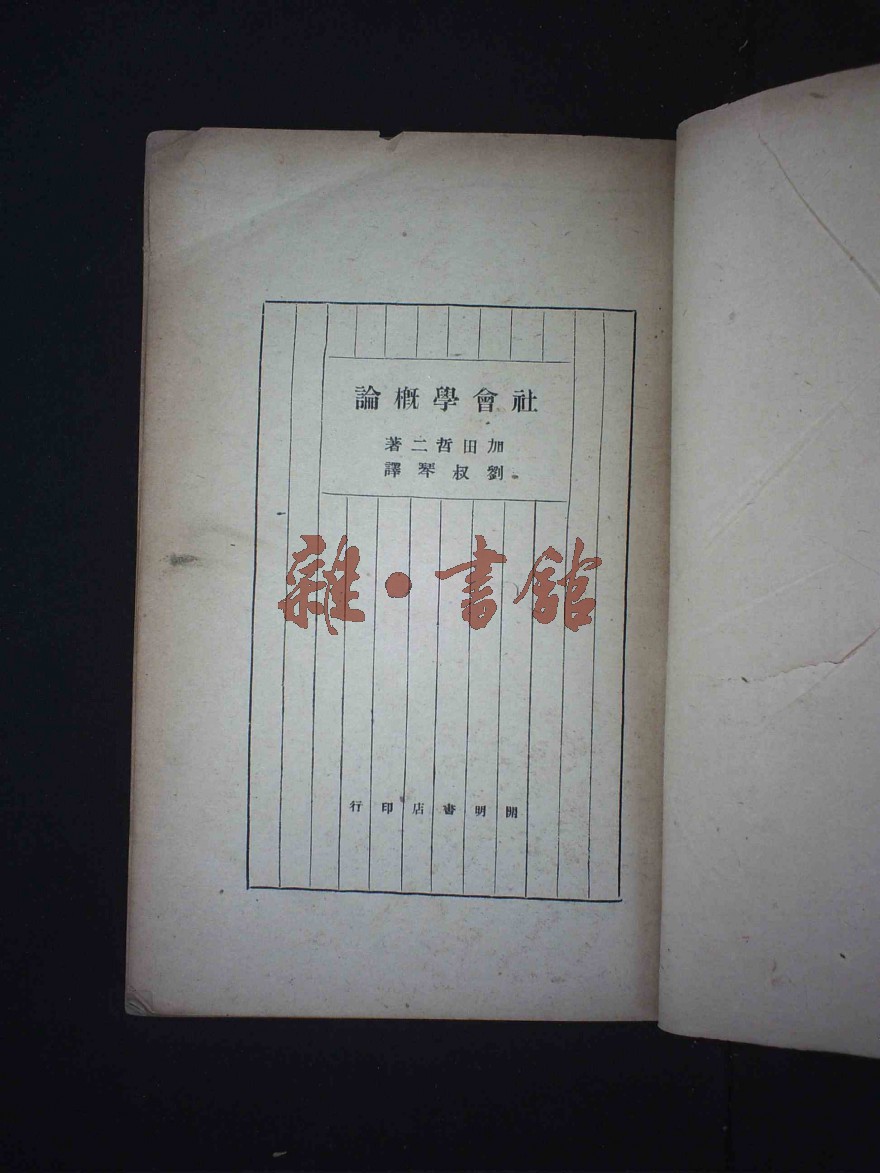 社會學概論
加田哲二著
劉叔琴譯
雜·書館
開明書店印行